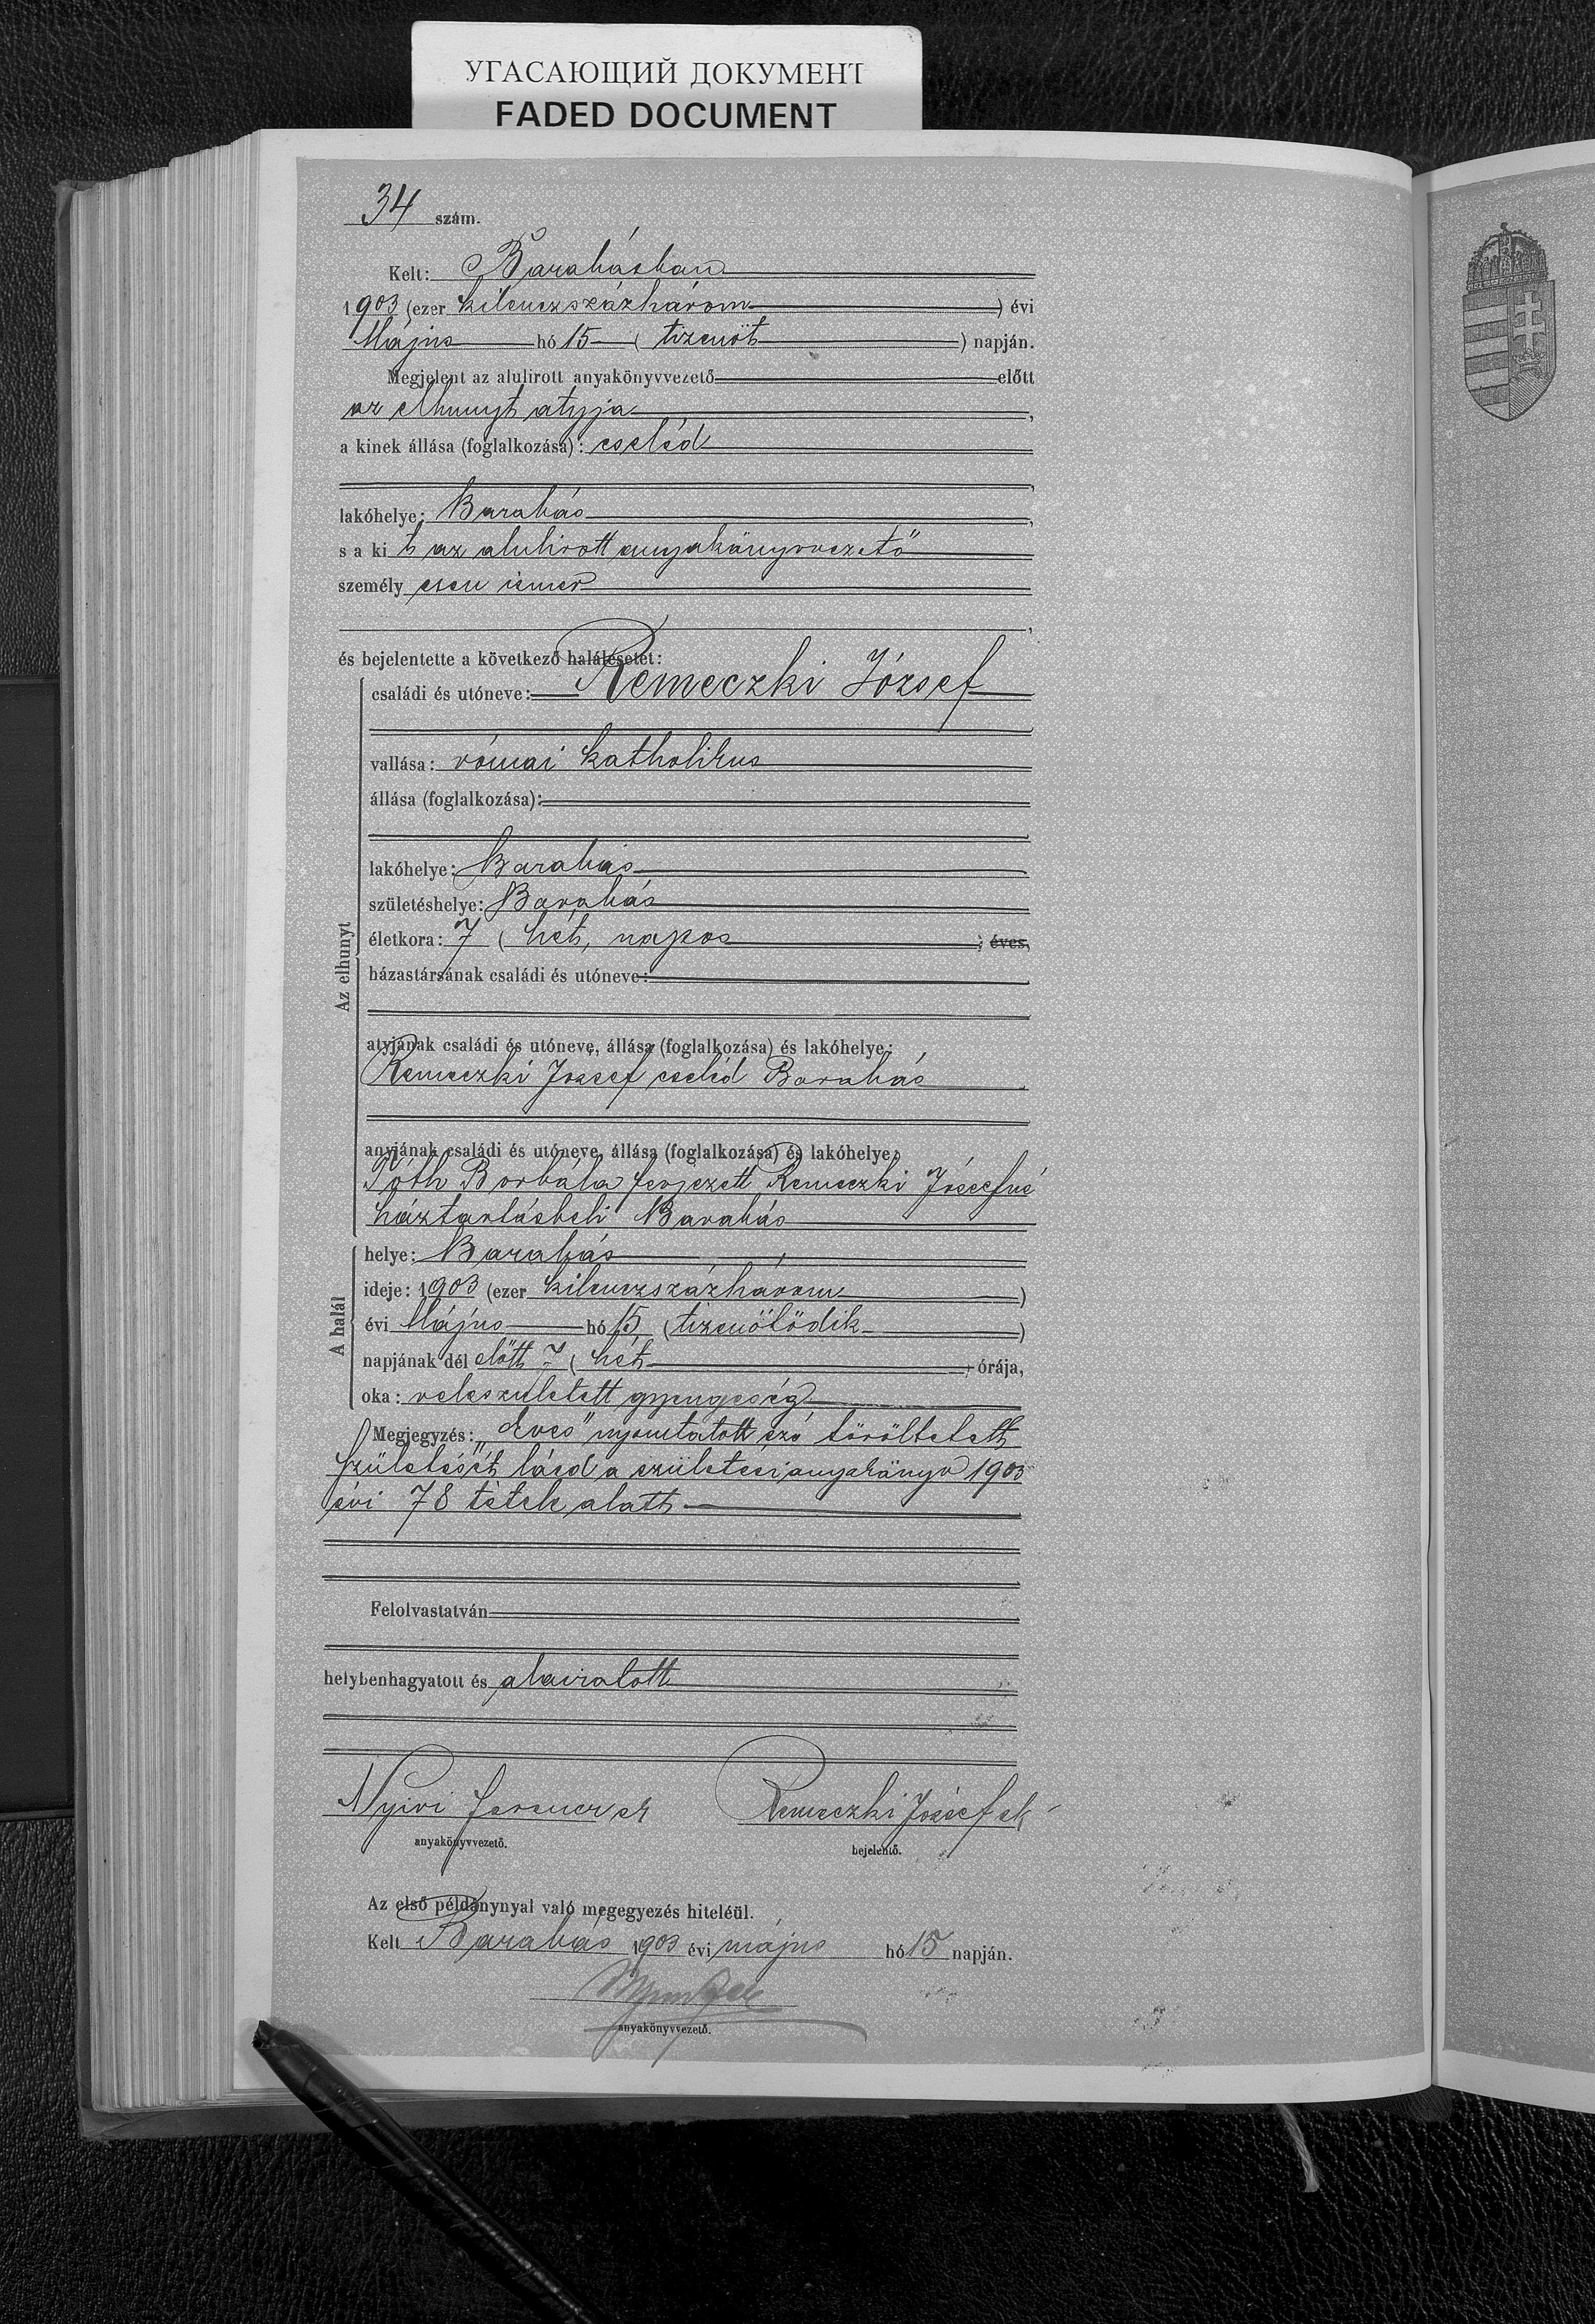 УГАСАЮЩИЙ ДОКУМЕНТ
FADED DOCUMENT
34 szám.
Kelt: Barabásban
1903 (ezer kilenczszázhárom ) évi
Május hó 15 ( tizenöt ) napján.
Megjelent az alulirott anyakönyvvezető előtt
az elhunyt atyja ,
a kinek állása (foglalkozása): cseléd
,
lakóhelye: Barabás ,
s a ki t az alulirott anyakönyvvezető
személy esen ismer
,
és bejelentette a következő halálesetet:
Az elhunyt
családi és utóneve: Remeczki József
,
vallása: római katholikus
állása (foglalkozása):
,
lakóhelye: Barabás
születéshelye: Barabás
életkora: 7 ( hét, napos ) éves,
házastársának családi és utóneve:
atyjának családi és utóneve, állása (foglalkozása) és lakóhelye:
Remeczki József cseléd Barabás
anyjának családi és utóneve, állása (foglalkozása) és lakóhelye:
Tóth Borbála férjezett Remeczki Józsefné
háztartásbeli Barabás
A halál
helye: Barabás
ideje: 1903 (ezer kilenczszázhárom )
évi Május hó 15 ( tizenötödik )
napjának dél előtt 7 ( hét ) órája,
oka: veleszuletett gyengeség
Megjegyzés: „Éves" nyomtatott szó töröltetett
születését lásd a születési anyakönyv 1903
évi 78 tétek alatt
Felolvastatván
helybenhagyatott és aláiratott
Nyiri Ferencz sk Remeczki József sk
anyakönyvvezető. bejelentő.
Az első példánynyal való megegyezés hiteléül.
Kelt Barabás 1903 évi május hó 15 napján.
anyakönyvvezető.